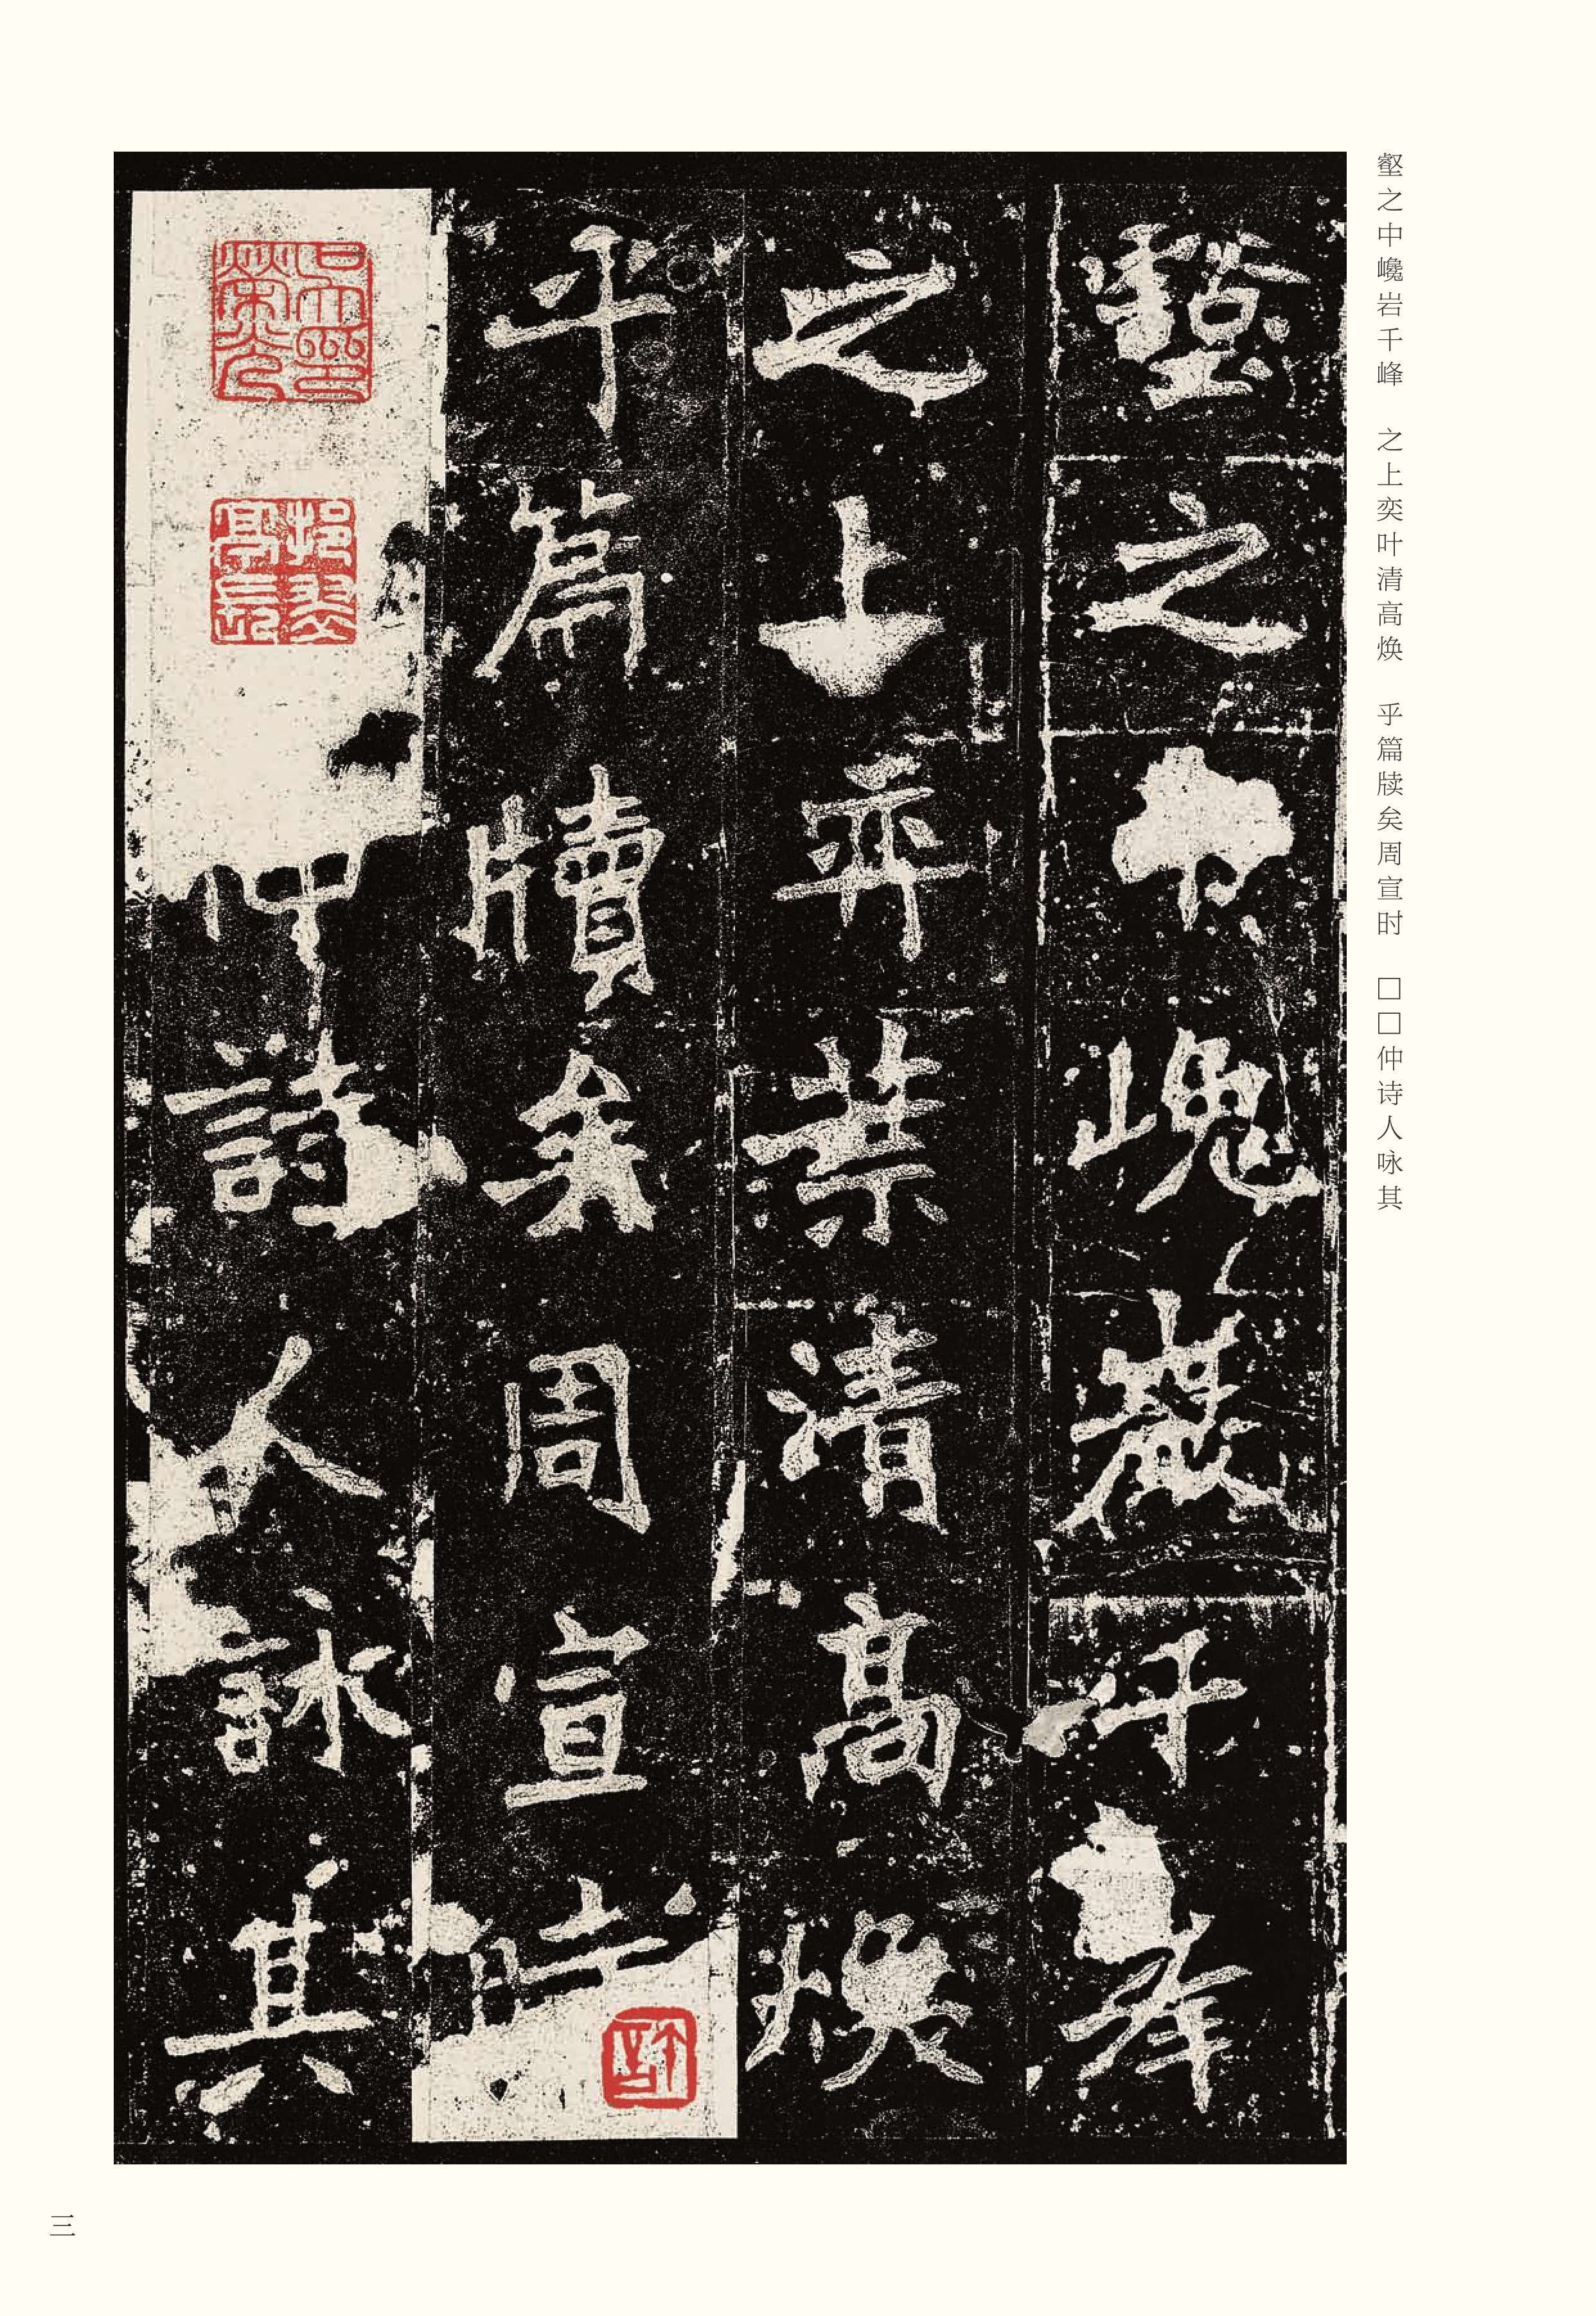 壑之中巉岩千峰　之上奕叶清高焕　乎篇牍矣周宣时　□□仲诗人咏其
壑之中巉巖千峯
之上弈葉清高焕
乎篇牘矣周宣時
仲詩人詠其
三